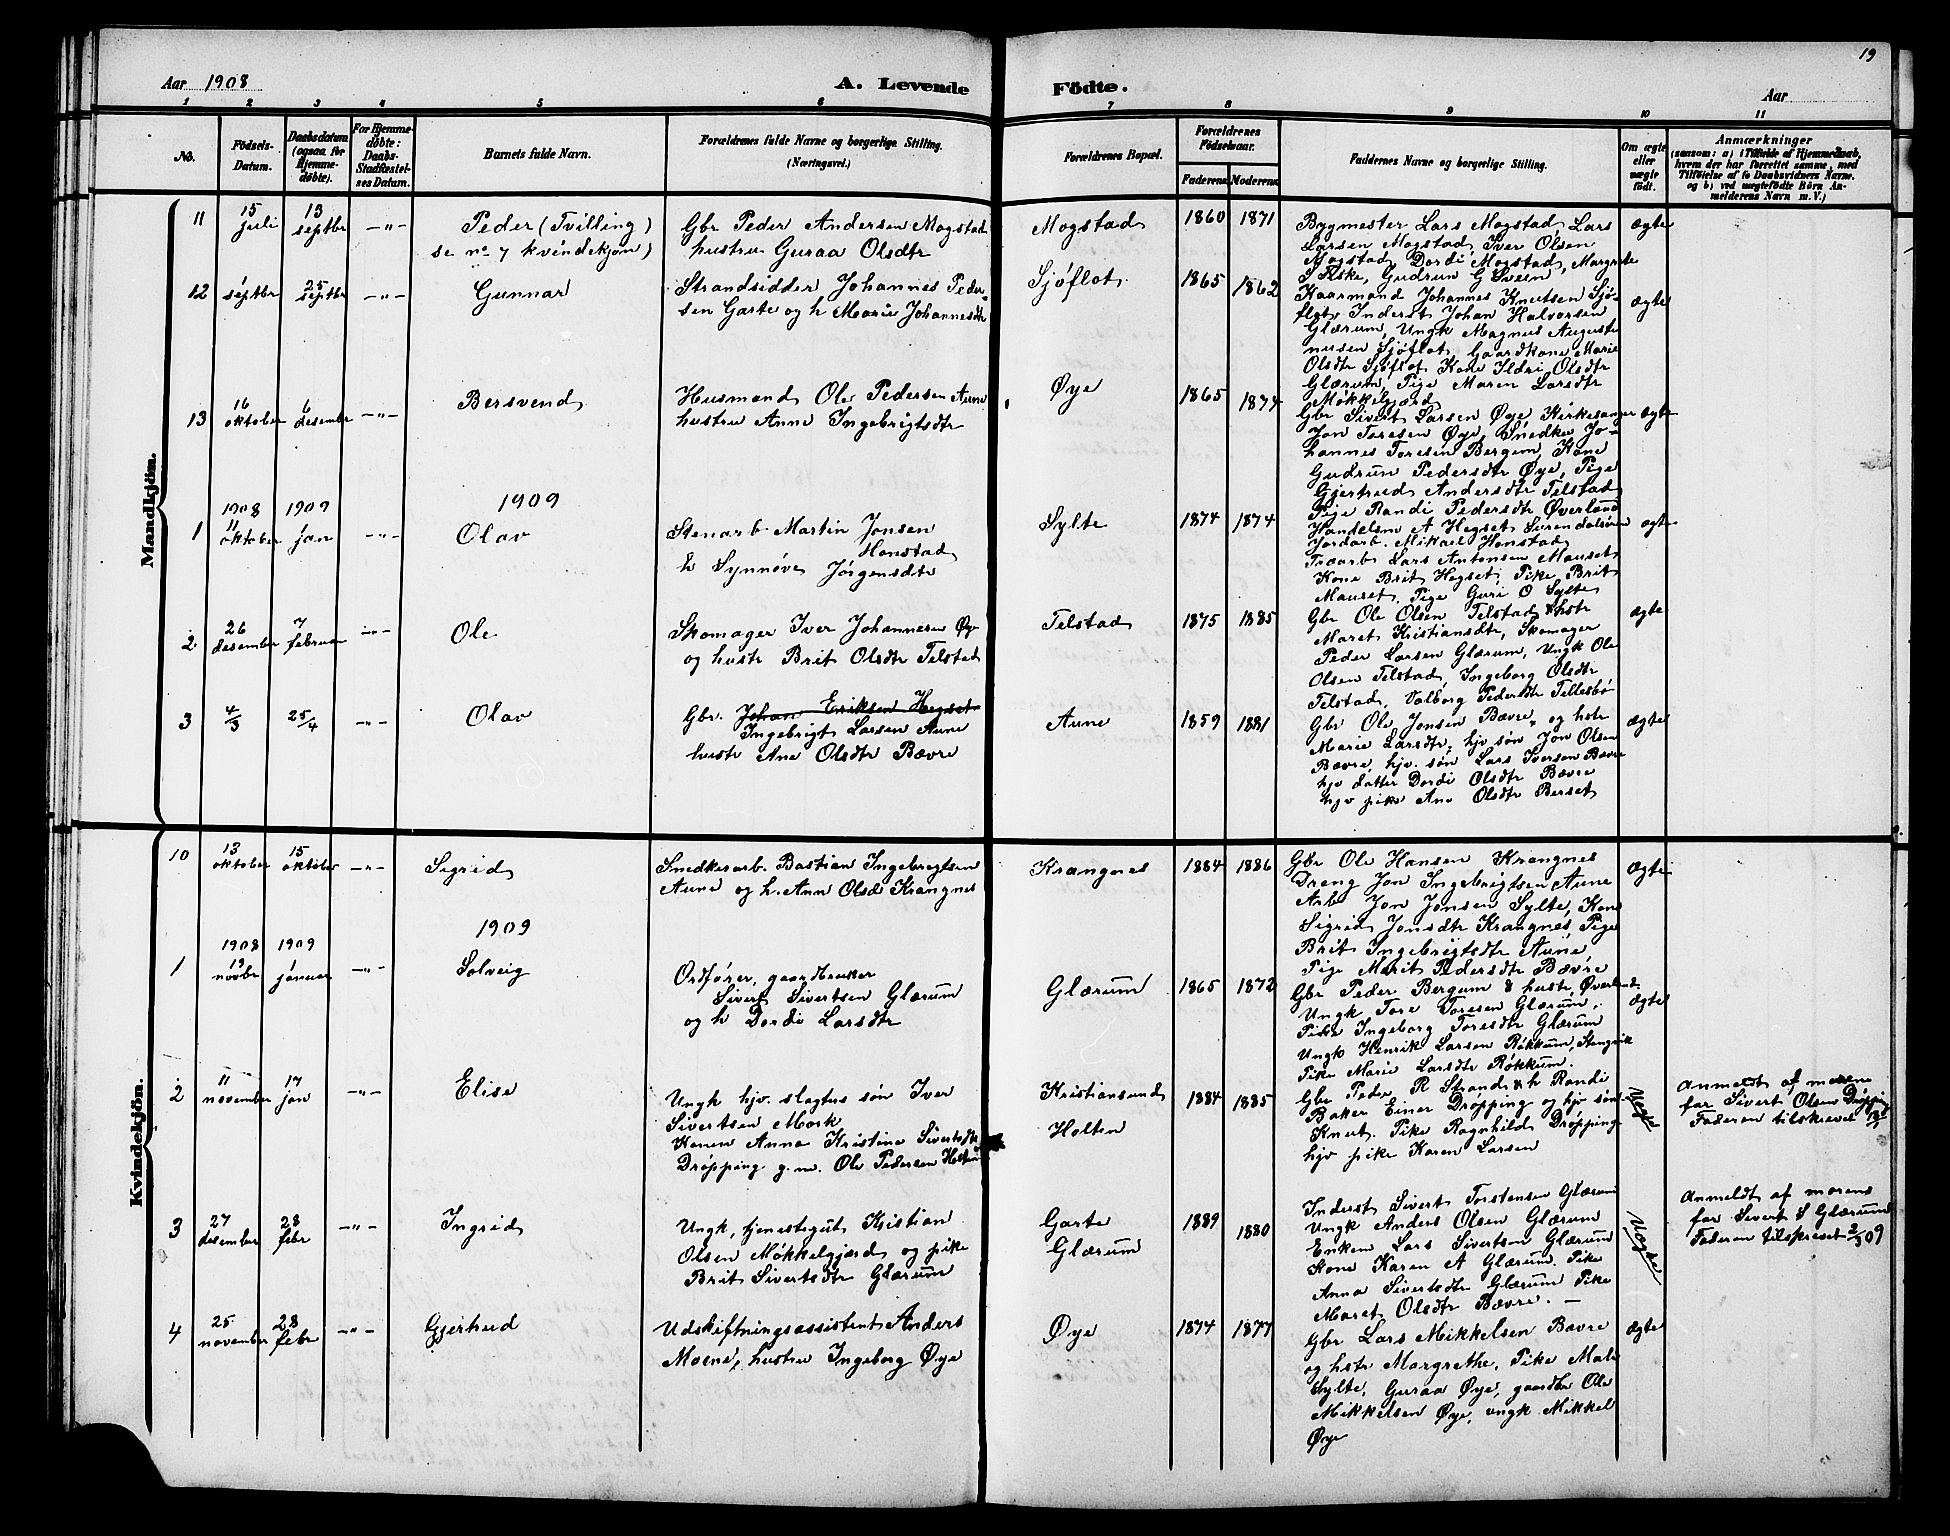 19
Aar 1908 A. Levende Födte. Aar
1 2 3 4 5 6 7 8 9 10 11
No.
Födsels-
Datum.
Daabsdatum
(ogsaa for
Hjemme-
døbte).
For Hjemme-
døbte:
Daabs-
Stadfæstel-
ses Datum.
Barnets fulde Navn.
Forældrenes fulde Navne og borgerlige Stilling.
(Næringsvei.)
Forældrenes Bopæl.
Forældrenes
Födselsaar.
Faderens Moderens
Faddernes Navne og borgerlige Stilling.
Om ægte
eller
uægte
født.
Anmærkninger
(saasom: a) i Tilfælde af Hjemmedaab,
hvem der har forrettet samme, med
Tilföielse af to Daabsvidners Navne,
og b) ved uægtefödte Börn An-
melderens Navn m. V.)
Mandkjön.
11
15
juli
13
septbr
-"-
Peder (Tvilling)
se no 7 kvindekjøn)
Gbr Peder Andersen Mogstad
hustru Guraa Olsdtr
Mogstad
1860 1871
Bygmester Lars Mogstad Lars
Larsen Mogstad, Iver Olsen
Mogstad, Dordi Mogstad, Margrete
S Aske, Gudrun G Svein
ægte
12
septbr
25
septbr
-"-
Gunnar
Strandsidder Johannes Peder-
sen Garte og h Marie Johannesdtr
Sjøflot
1865 1862
Kaarmand Johannes Knutsen Sjø-
flot, Inderst Johan Halvorsen
Glærum, Ungk Magnus Augusti
nusen Sjøflot, Gaardkone Marie
Olsdtr Sjøflot Kone Ildri Olsdtr
Glærum, Pige Maren Larsdtr
Møkkelgjærd
ægte
13
16
oktober
6
desember
-"-
Bersvend
Husmand Ole Pedersen Aune
hustru Anne Ingebrigtsdtr
Øye
1865 1874
Gbr Sivert Larsen Øye Kirkesanger
Jon Toresen Øye, Snedker Jo-
hannes Toresen Bergem, Kone
Gudrun Pedersdtr Øye, Pige
Gjertrud Andersdtr Telstad
Pige Randi Pedersdtr Øverland
ægte
1909
1
1908
11
oktober
1909
jan
-"-
Olav
Stenarb. Martin Jonsen
Honstad
h Synnøve Jørgensdtr
Sylte
1874 1874
Handelsm A Hegset Surendalsøren
Jordarb. Mikael Honstad
Træarb Lars Antonsen Mauset
Kone Brit Hegset, Pike Brit
Mauset, Pige Guri O Sylte
ægte
2
26
desember
7
februar
-"-
Ole
Skomager Iver Johannesen Øye
og hustr Brit Olsdtr Telstad
Telstad
1875 1885
Gbr Ole Olsen Telstad & hstr
Maret Kristiansdtr, Skomager
Peder Larsen Glærum, Ungk Ole
Olsen Telstad, Ingeborg Olsdtr
Telstad, Valborg Pedersdtr Tellesbø
ægte
3
4/3
25/4
-"-
Olav
Gbr. Johan Eriksen Hegset
Ingebrigt Larsen Aune
hustr Ane Olsdtr Bævre
Aune
1859 1881
Gbr Ole Jonsen Bævre, og hstr
Marie Larsdtr, hjv søn Jon Olsen
Bævre, hjv. søn Lars Iversen Bævre
hjv datter Dordi Olsdtr Bævre
hjv pike Ane Olsdtr Berset
ægte
Kvindekjön.
10
13
oktober
15
oktober
-"-
Sigrid
Snedkerarb. Bastian Ingebrigtsen
Aune og h. Ann Olsd Krangnes
Krangnes
1884 1886
Gbr Ole Hansen Krangnes
Dreng Jon Ingebrigtsen Aune
Arb Jon Jonsen Sylte, Kone
Sigrid Jonsdtr Krangnes, Pige
Brit Ingebrigtsdtr Aune
Pige Marit Pedersdtr Bævre
ægte
1909
1
1908
19
novbr
1909
januar
-"-
Solveig
Ordfører, gaardbruker
Sivert Sivertsen Glærum
og h Dordi Larsdtr
Glærum
1865 1872
Gbr Peder Bergum & hustr, Øverland
Ungk Tore Toresen Glærum,
Pike Ingeborg Toresdtr Glærum
Ungk Henrik Larsen Røkkum, Stangvik
Pike Marie Larsdtr Røkkum.
ægte
2
11
november
17
jan
-"-
Elise
Ungk hjv. slagters søn Iver
Sivertsen Mork
Konen Anna Kristine Sivertsdtr
Drøpping g. m. Ole Pedersen Holten
Kristiansund
Holten
1884 1885
Gbr Peder R Strand & h Randi
Baker Einer Drøpping og hjv søn
Knut. Pike Ragnhild Drøpping
hjv pike Karen Larsen
Anmeldt af moren
for Sivert Olsen Drøpping
Faderen tilskrevet
3
27
desember
28
febr
-"-
Ingrid
Ungk, tjenestegut Kristian
Olsen Møkkelgjærd og pike
Brit Sivertsdtr Glærum
Garte
Glærum
1889 1880
Inderst Sivert Torstensen Glærum
Ungk Anders Olsen Glærum
Enkem Lars Sivertsen Glærum
Kone Karen A Glærum. Pike
Anna Sivertsdtr Glærum Pike
Maret Olsdtr Bævre. —
Uægte
Anmeldt af morens
far Sivert S Glærum
Faderen tilskrevet 2/3 09
4
25
november
28
febr
-"-
Gjertrud
Udskiftningsassistent Anders
Moene, hustru Ingeborg Øye
Øye
1874 1877
Gbr Lars Mikkelsen Bævre
og hstr Margrethe, Pike Mali
Sylte, Guraa Øye, gaardbr Ole
Mikkelsen Øye, ungk Mikkel
Øye
ægte